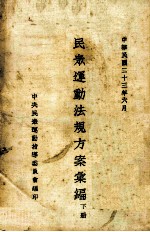 中華民國二十三年六月
民眾運動法規方案彙編下册
中央民眾運動指導委員會編印